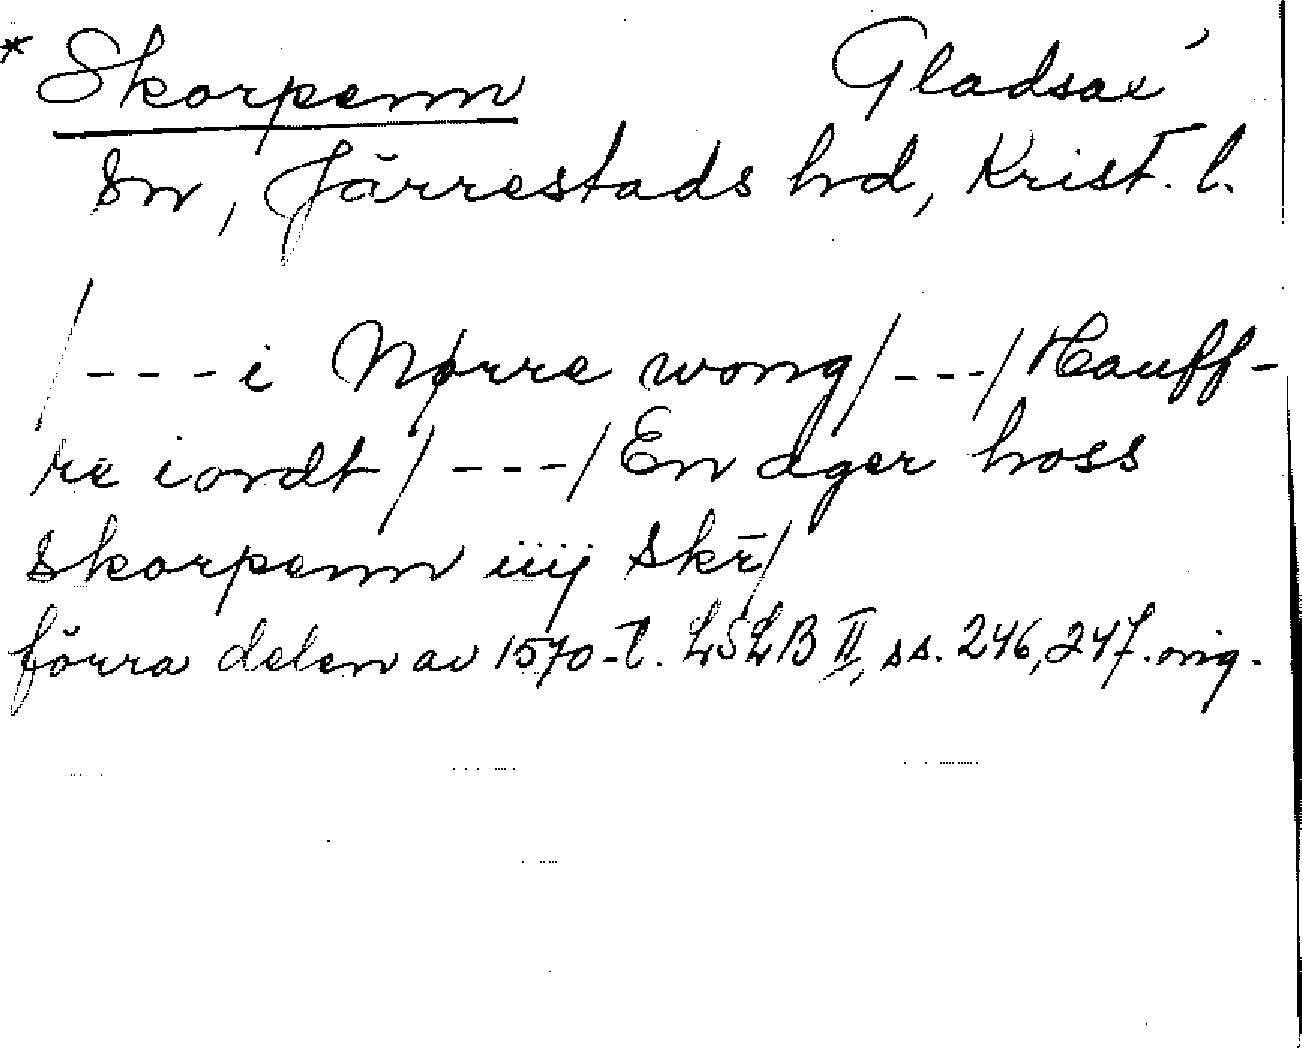 * Skorpenn Gladsax'
sn, Järrestads hd, Krist. l.
/---i Nørre wong/---/Hauff-
re iordt/---/En ager hoss
skorpenn iiij skr̄/
förra delen av 1570-t. LSLB II, ss. 246, 247. orig.